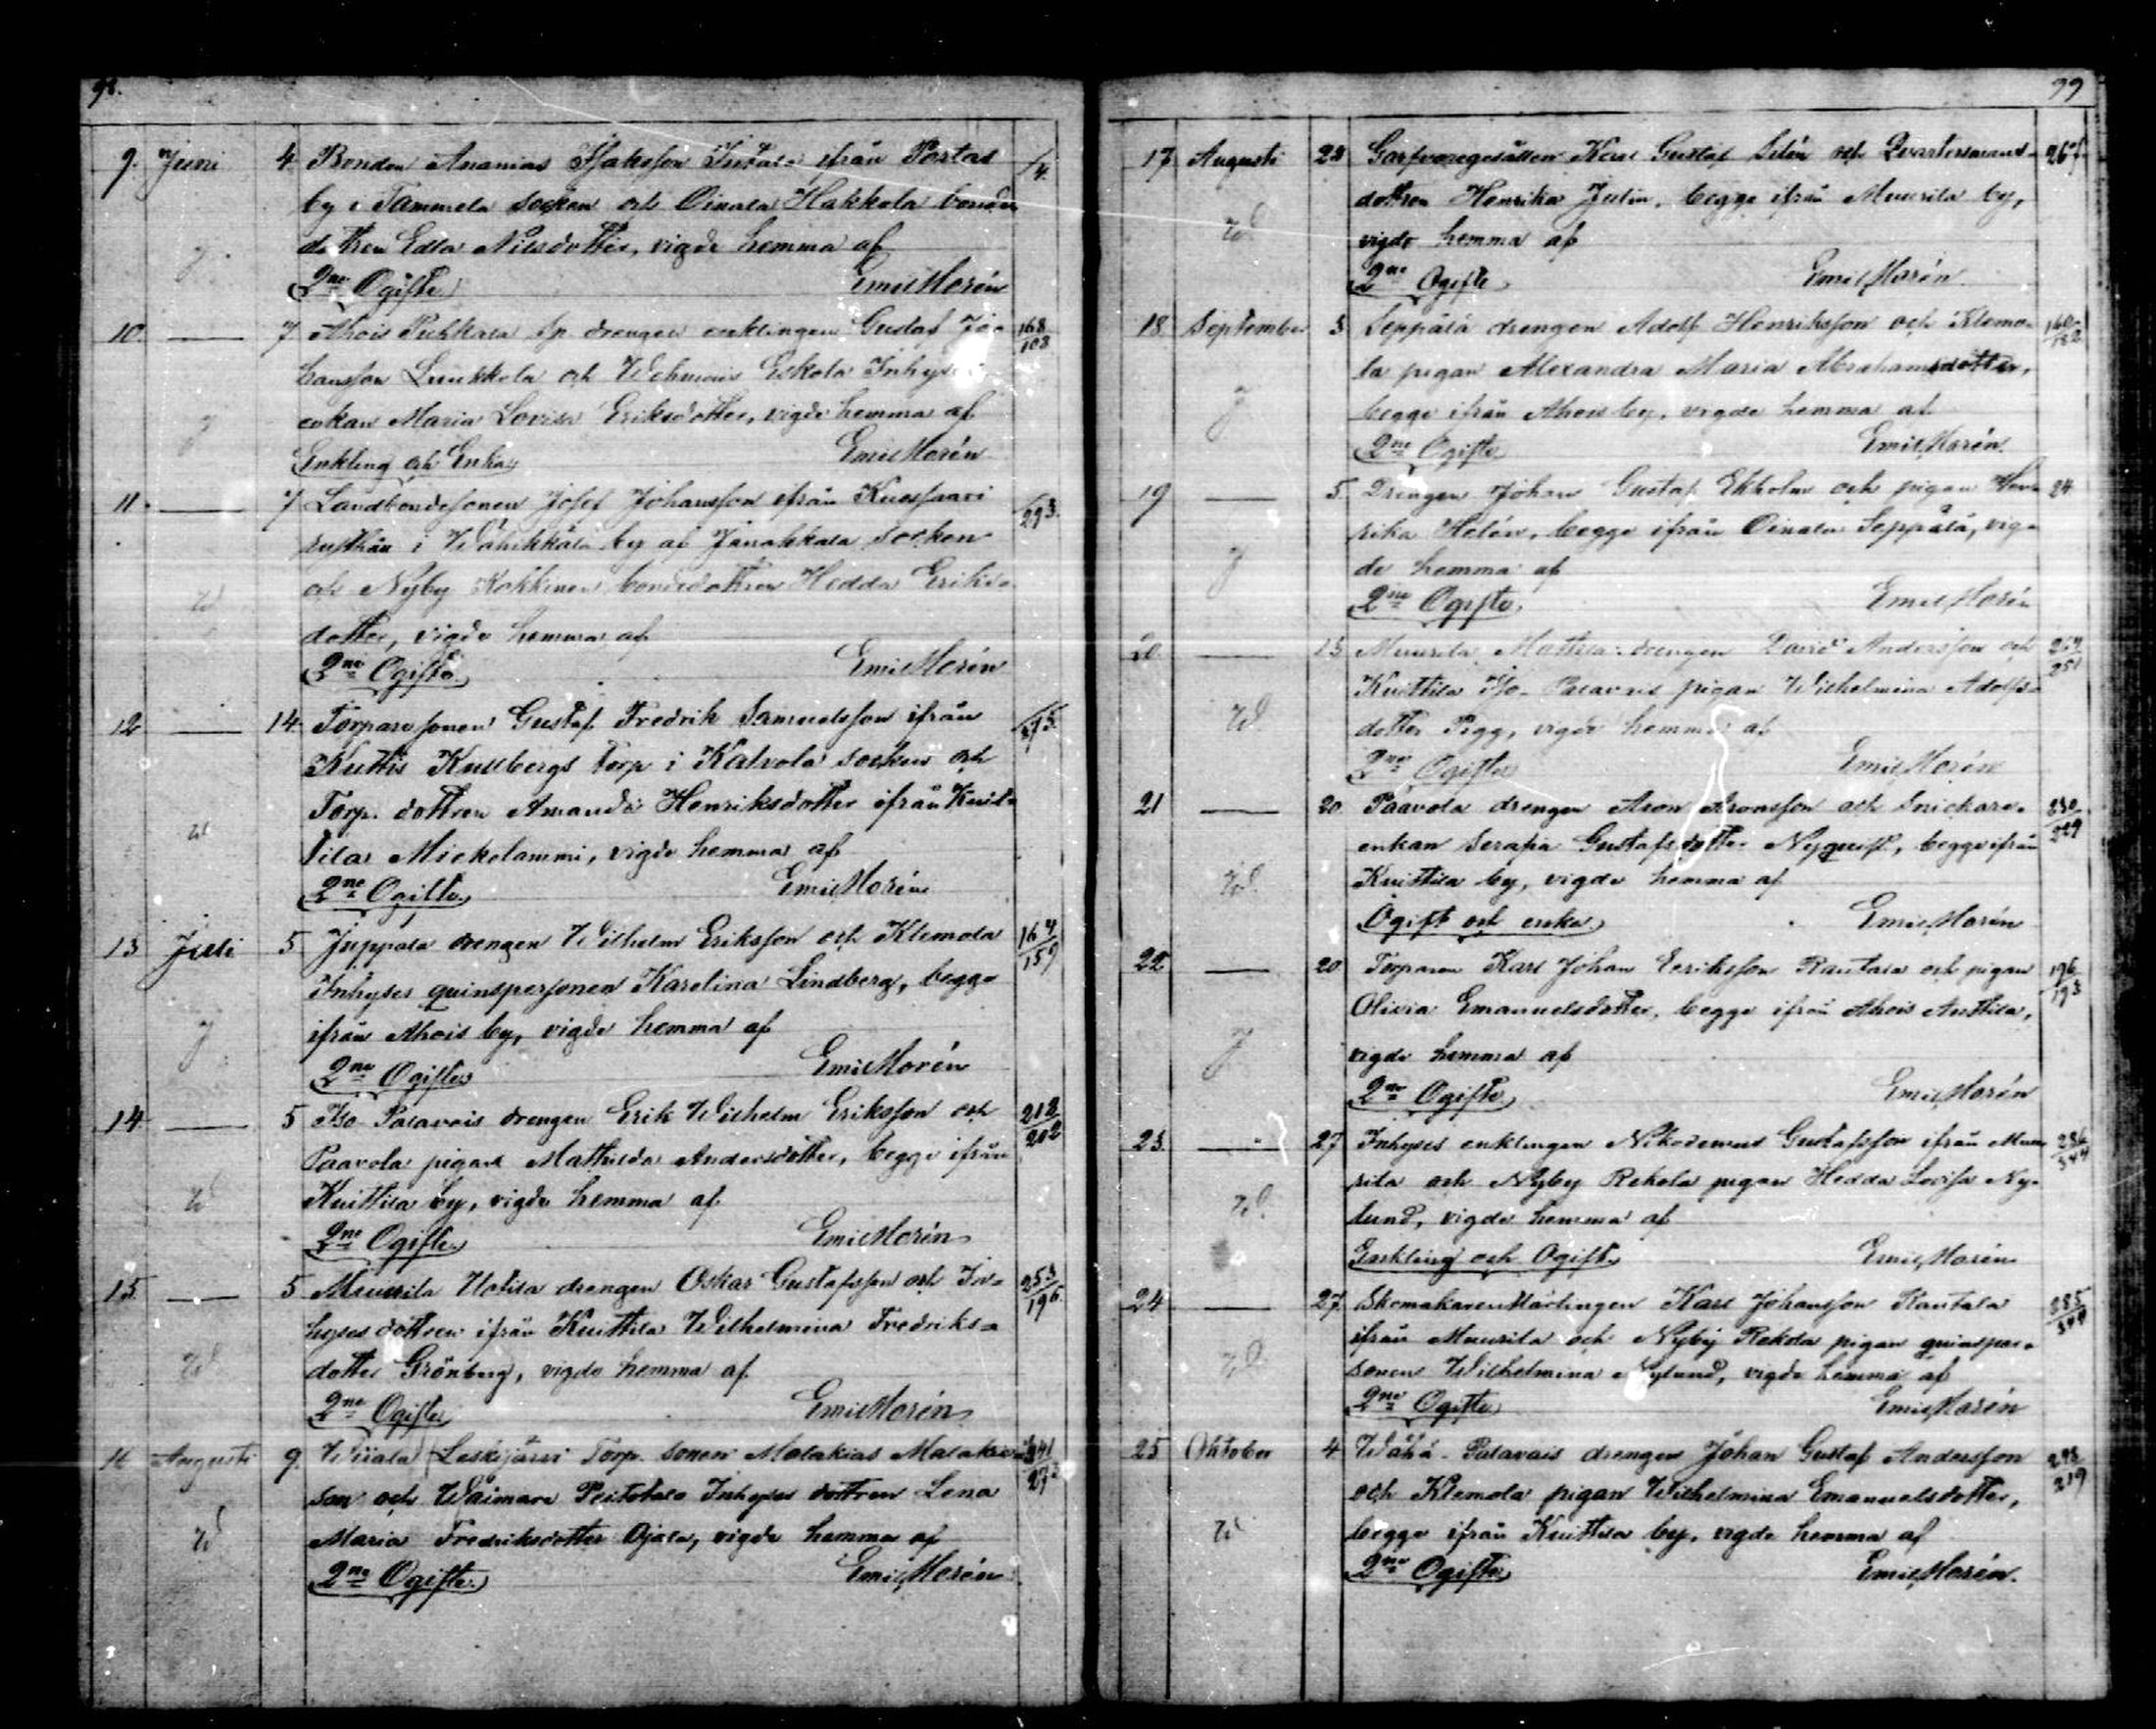 98.
9. Juni 4. Bonden Ananias Isaksson ifrån Portas /4.
by i Tammela socken och Oinala Hakkola bonde
dottren Edla Nilsdotter, vigde hemma af
2ne Ogifte. Emil Morén
10. — 7 Ahois Pukkala drengen enklingen Gustaf Jo= 168/108
hansson Luukkola och Wehmais Eskola Inhyses
enkan Maria Lovisa Eriksdotter, vigde hemma af
Enkling och Enka, Emil Morén
11. — 7 Landbondesonen Josef Johansson ifrån Kuussaari /293.
rusthåll i Wähikkälä by af Janakkala socken
och Nyby Kokkinen bondedottren Hedda Eriks=
dotter, vigde hemma af
2ne Ogifte. Emil Morén
12 — 14. Torparesonen Gustaf Fredrik Samuelsson ifrån
Kuttis Kullbergs torp i Kalvola socken och
Torp. dottren Amanda Henriksdotter ifrån Knut=
tila Mickolammi, vigde hemma af
2ne Ogifte. Emil Morén
13 Juli 5 Juppala drengen Wilhelm Eriksson och Klemola 164/159
Inhyses quinspersonen Karolina Lindberg, begge
ifrån Ahois by, vigde hemma af
2ne Ogifte Emil Morén
14 — 5 Iso Palavais drengen Erik Wilhelm Eriksson och 218/202
Paavola pigan Mathilda Andersdotter, begge ifrån
Knuttila by, vigde hemma af
2ne Ogifte. Emil Morén
15 — 5 Muurila Uotila drengen Oskar Gustafsson och In= 253/196.
hyses dottren ifrån Knuttila Wilhelmina Fredriks=
dotter Grönberg, vigde hemma af
2ne Ogifte Emil Morén
16 Augusti 9. Wiiala Leskijärvi Torp. sonen Malakias Malakias
son och Waimare Peitola Inhyses dottren Lena
Maria Fredriksdotter Ojala, vigde hemma af
2ne Ogifte. Emil Morén
99
17 Augusti 22 Garfvaregesällen Karl Gustaf Silén och Qvartersmans= 267
dottren Henrika Julin, begge ifrån Muurila by,
vigde hemma af
2ne Ogifte Emil Morén
18 September 3 Seppälä drengen Adolf Henriksson och Klemo= 160/182
la pigan Alexandra Maria Abrahamsdotter,
begge ifrån Ahois by, vigde hemma af
2ne Ogifte Emil Morén.
19 — 5. Drengen Johan Gustaf Ekholm och pigan Hen= 24
rika Helén, begge ifrån Oinala Seppälä, vig=
de hemma af
2ne Ogifte. Emil Morén
20 — 13 Muurila Mattila drengen David Andersson och 264/251
Knuttila Iso- Palavais pigan Wilhelmina Adolfs=
dotter Pigg, vigde hemma af
2ne Ogifte Emil Morén
21 — 20 Paavola drengen Aron Aronsson och Snickare= 230/229
enkan Serafia Gustafsdotter Nyqvist, begge ifrån
Knuttila by, vigde hemma af
Ogift och enka. Emil Morén
22 — 20 Torparen Karl Johan Eriksson Rautala och pigan 196/193
Olivia Emanuelsdotter, begge ifrån Ahois Anttila,
vigde hemma af
2ne Ogifte Emil Morén
23. — 27 Inhyses enklingen Nikodemus Gustafsson ifrån Muu= 286/344
rila och Nyby Rekola pigan Hedda Lovisa Ny=
lund, vigde hemma af
Enkling och Ogift. Emil Morén
24 — 27. Skomakarenlärlingen Karl Johansson Rautala 285/344
ifrån Muurila och Nyby Rekola pigan quinsper=
sonen Wilhelmina Nylund, vigde hemma af
2ne Ogifte Emil Morén
25 Oktober 4 Wähä- Palavais drengen Johan Gustaf Andersson 219
och Klemola pigan Wilhelmina Emanuelsdotter,
begge ifrån Knuttila by, vigde hemma af
2ne Ogifte Emil Morén.